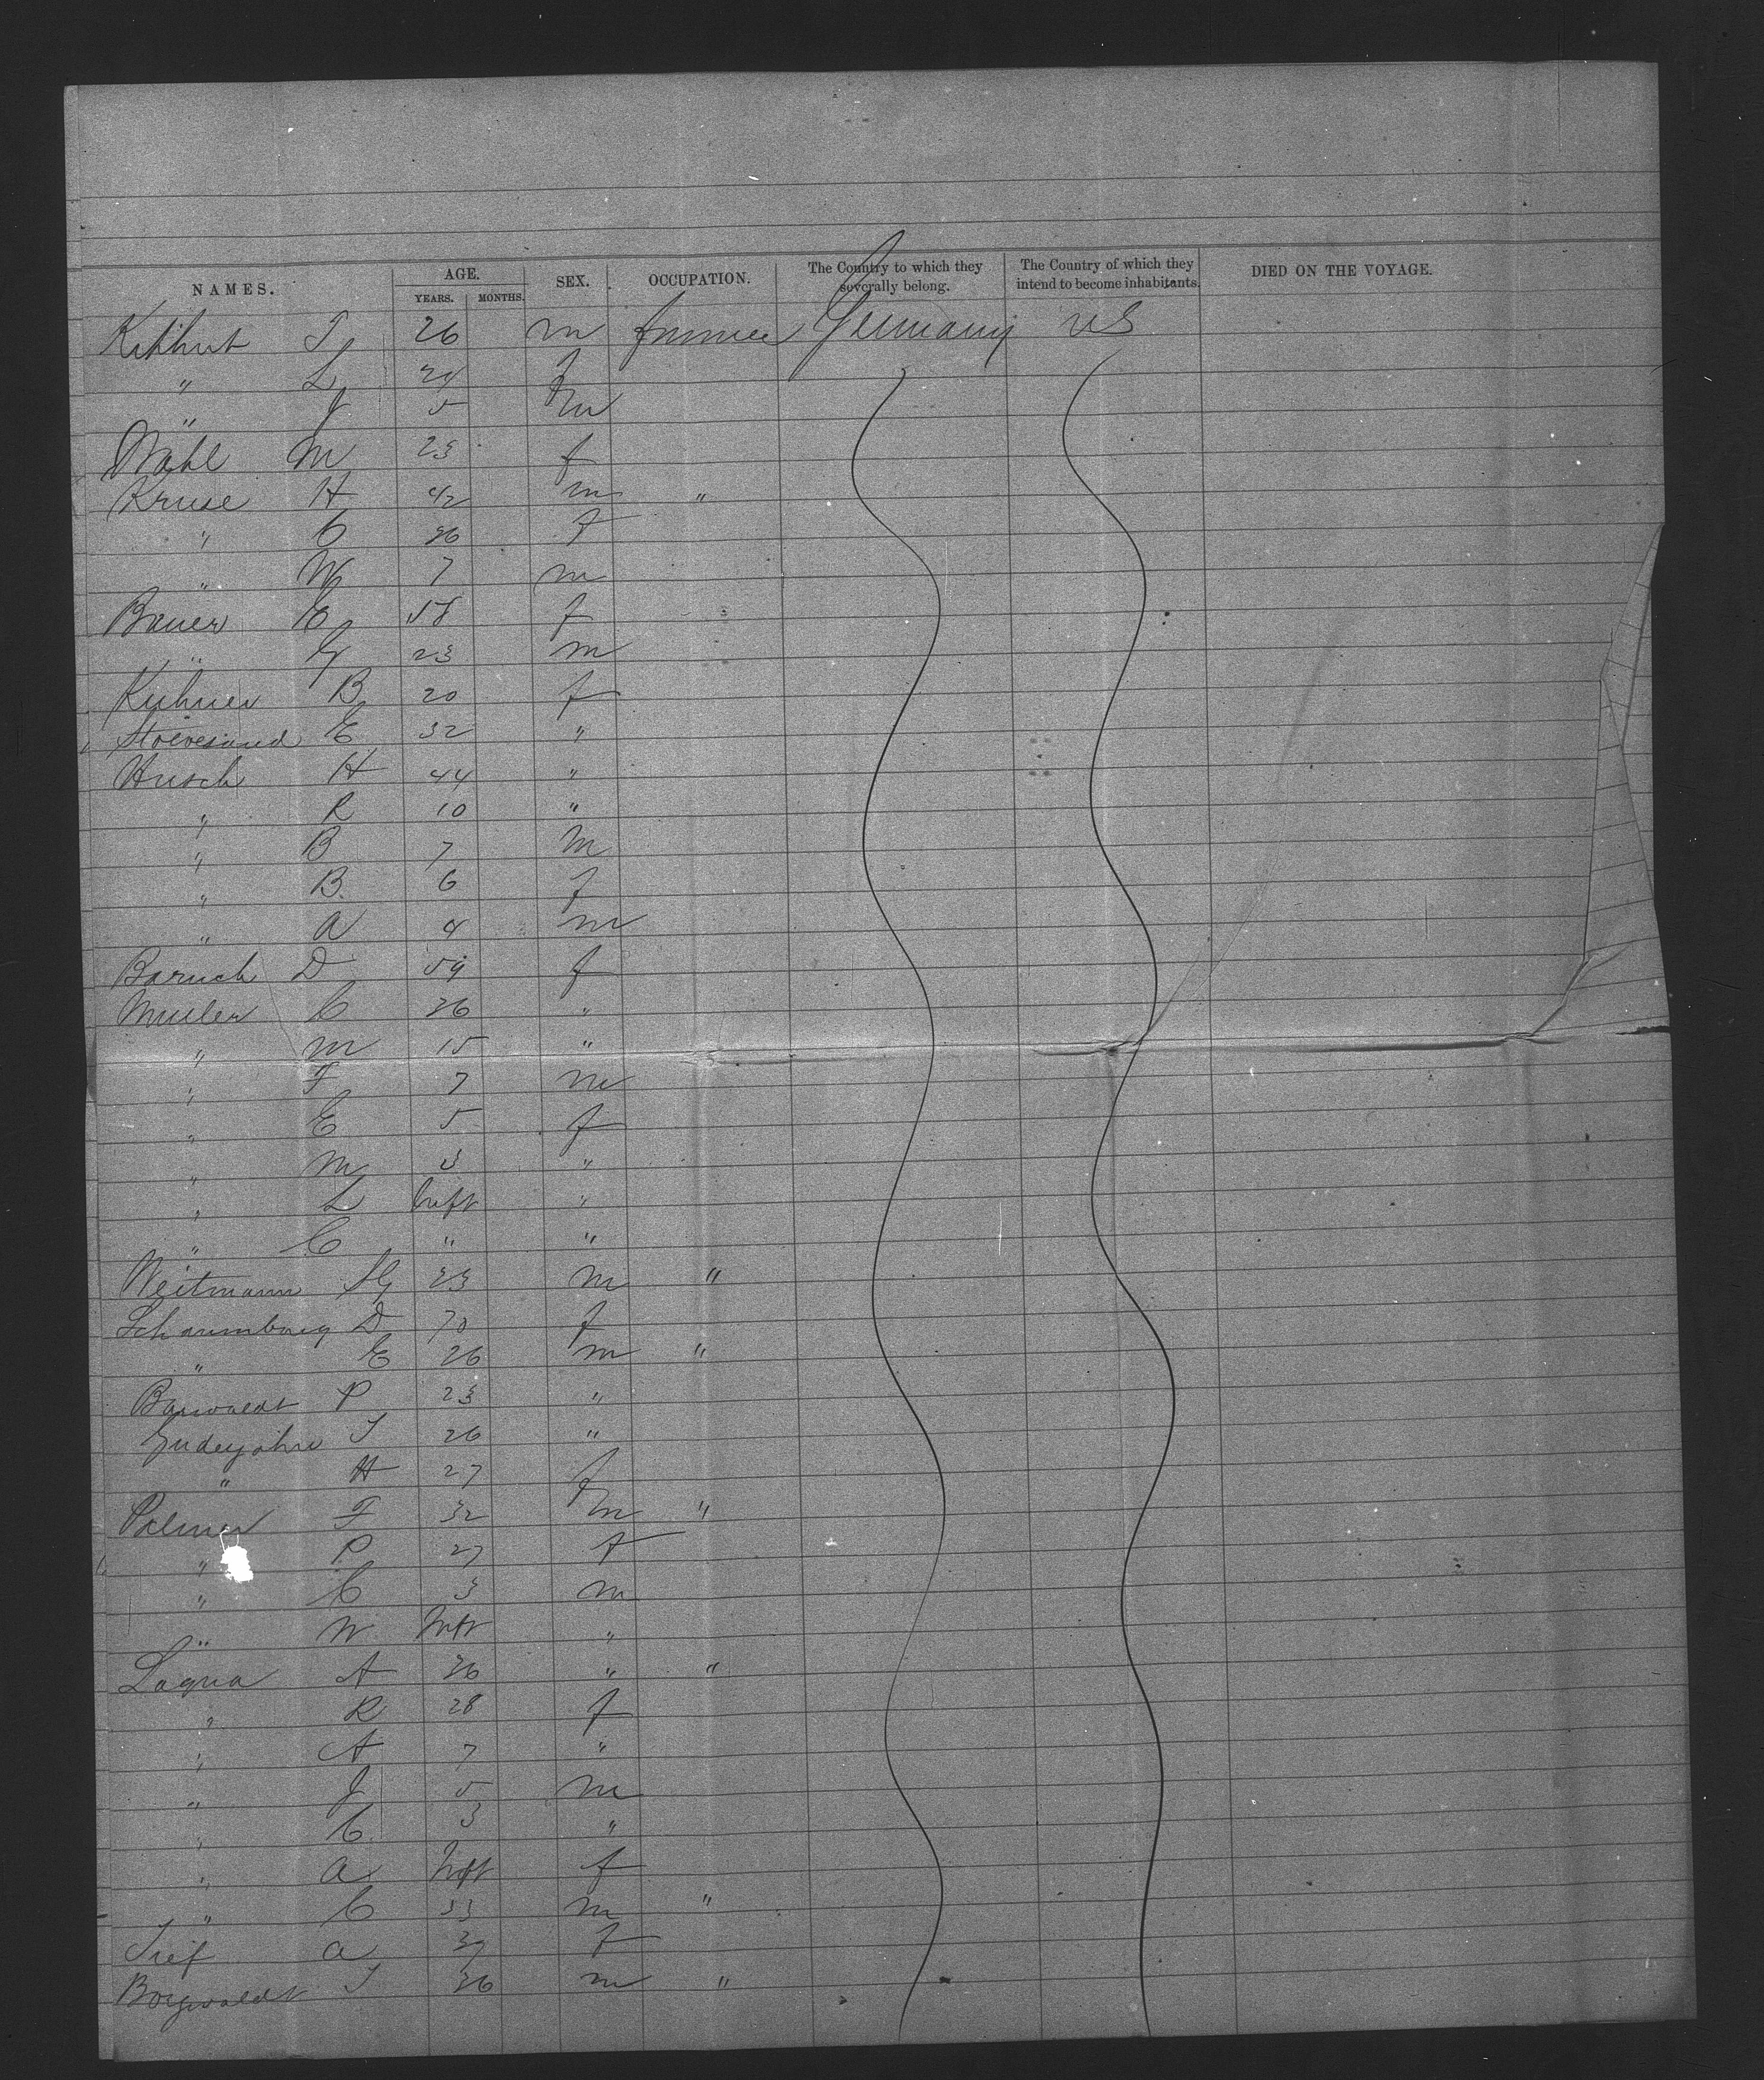 NAMES. AGE. SEX. OCCUPATION. The Country to which they severally belong. The Country of which they intend to become inhabitants. DIED ON THE VOYAGE.
YEARS. MONTHS.
26 m Germany US
" L 24 f
" J 5 m
Wahl M 23 f
Kruse H 42 m "
" C 36 f
" W 7 m
Bauer C 58 f
" G 23 m
Kuhner B 20 f
Stoevesand E 32 "
Husch H 44 "
" R 10 "
" B 7 m
" B. 6 f
" A 4 m
Baruch D 59 f
Muller C 36 "
" M 15 "
" F 7 m
" E 5 f
" M 3 "
" L Inft "
" C " "
Weitmann 33 m "
Schaumburg D 70 f
" E 26 m "
Barwaldt P 23 "
Gudejohn J 26 "
" H 27 f
Palmer F 32 m "
" P 27 f
" C 3 m
" W Inft "
Laqua A 36 " "
" R 28 f
" A 7 "
" J 5 m
" C 3 "
" A Inft f
" C 33 m "
A f
Borgwaldt J 36 m "